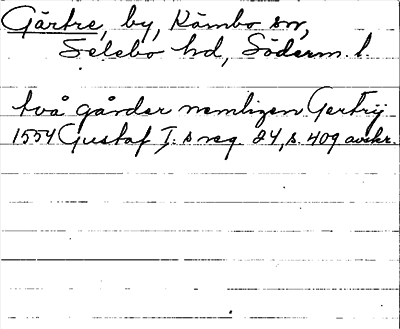 Gärtre, by, Kärnbo sn,
Selebo hd, Söderm. l.
två gårder nemligen Gertrij
1554 Gustaf I:s reg. 24, s. 409 avskr.